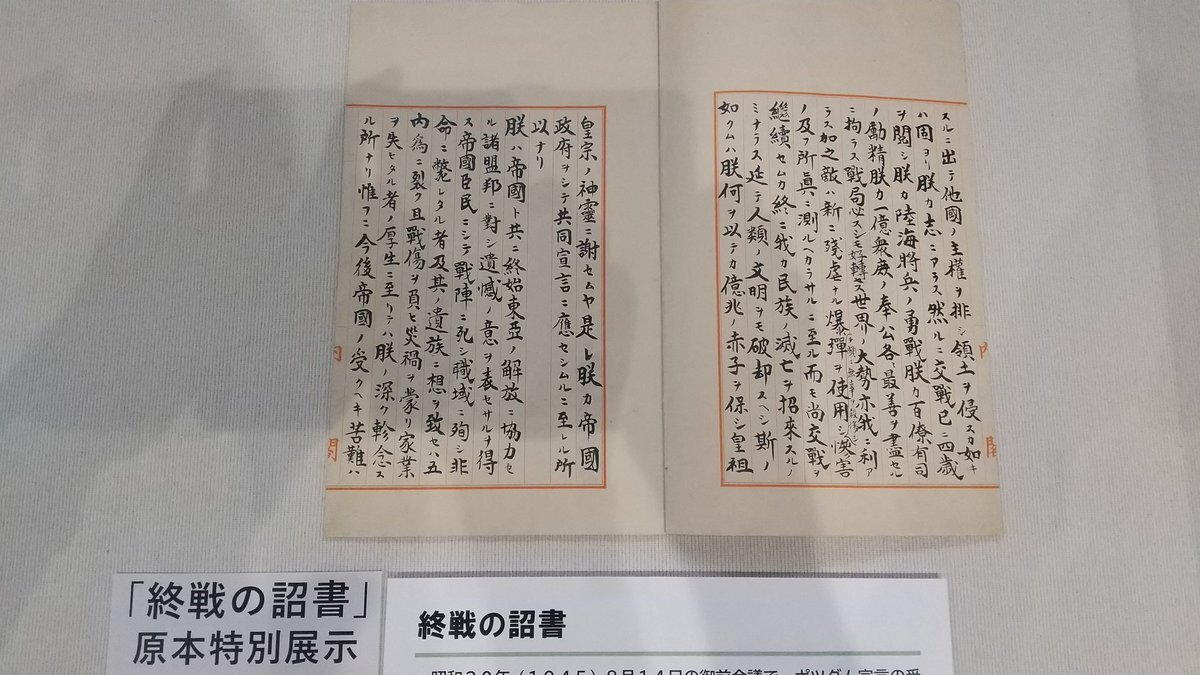 スルニ出テ他國ノ主權ヲ排シ領土ヲ侵スカ如キ
ハ固ヨリ朕カ志ニアラス然ルニ交戰已ニ四歳
ヲ閲シ朕カ陸海將兵ノ勇戰朕カ百僚有司
ノ勵精朕カ一億衆庶ノ奉公各最善ヲ盡セル
ニ拘ラス戰局必スシモ好轉セス世界ノ大勢亦我ニ利ア
ラス加之敵ハ新ニ殘虐ナル爆彈ヲ使用シ慘害
テ頻ニ無辜ヲ殺傷シ
ノ及フ所眞ニ測ルヘカラサルニ至ル而モ尚交戰ヲ
繼續セムカ終ニ我カ民族ノ滅亡ヲ招來スルノ
ミナラス延テ人類ノ文明ヲモ破却スヘシ斯ノ
如クムハ朕何ヲ以テカ億兆ノ赤子ヲ保シ皇祖
内閣
皇宗ノ神靈ニ謝セムヤ是レ朕カ帝國
政府ヲシテ共同宣言ニ應セシムルニ至レル所
以ナリ
朕ハ帝國ト共ニ終始東亞ノ解放ニ協力セ
ル諸盟邦ニ對シ遺憾ノ意ヲ表セサルヲ得
ス帝國臣民ニシテ戰陣ニ死シ職域ニ殉シ非
命ニ斃レタル者及其ノ遺族ニ想ヲ致セハ五
内爲ニ裂ク且戰傷ヲ負ヒ災禍ヲ蒙リ家業
ヲ失ヒタル者ノ厚生ニ至リテハ朕ノ深ク軫念ス
ル所ナリ惟フニ今後帝國ノ受クヘキ苦難ハ
内閣
「終戦の詔書」
原本特別展示
終戦の詔書
昭和20年（1945）8月14日の御前会議で、ポツダム宣言の受